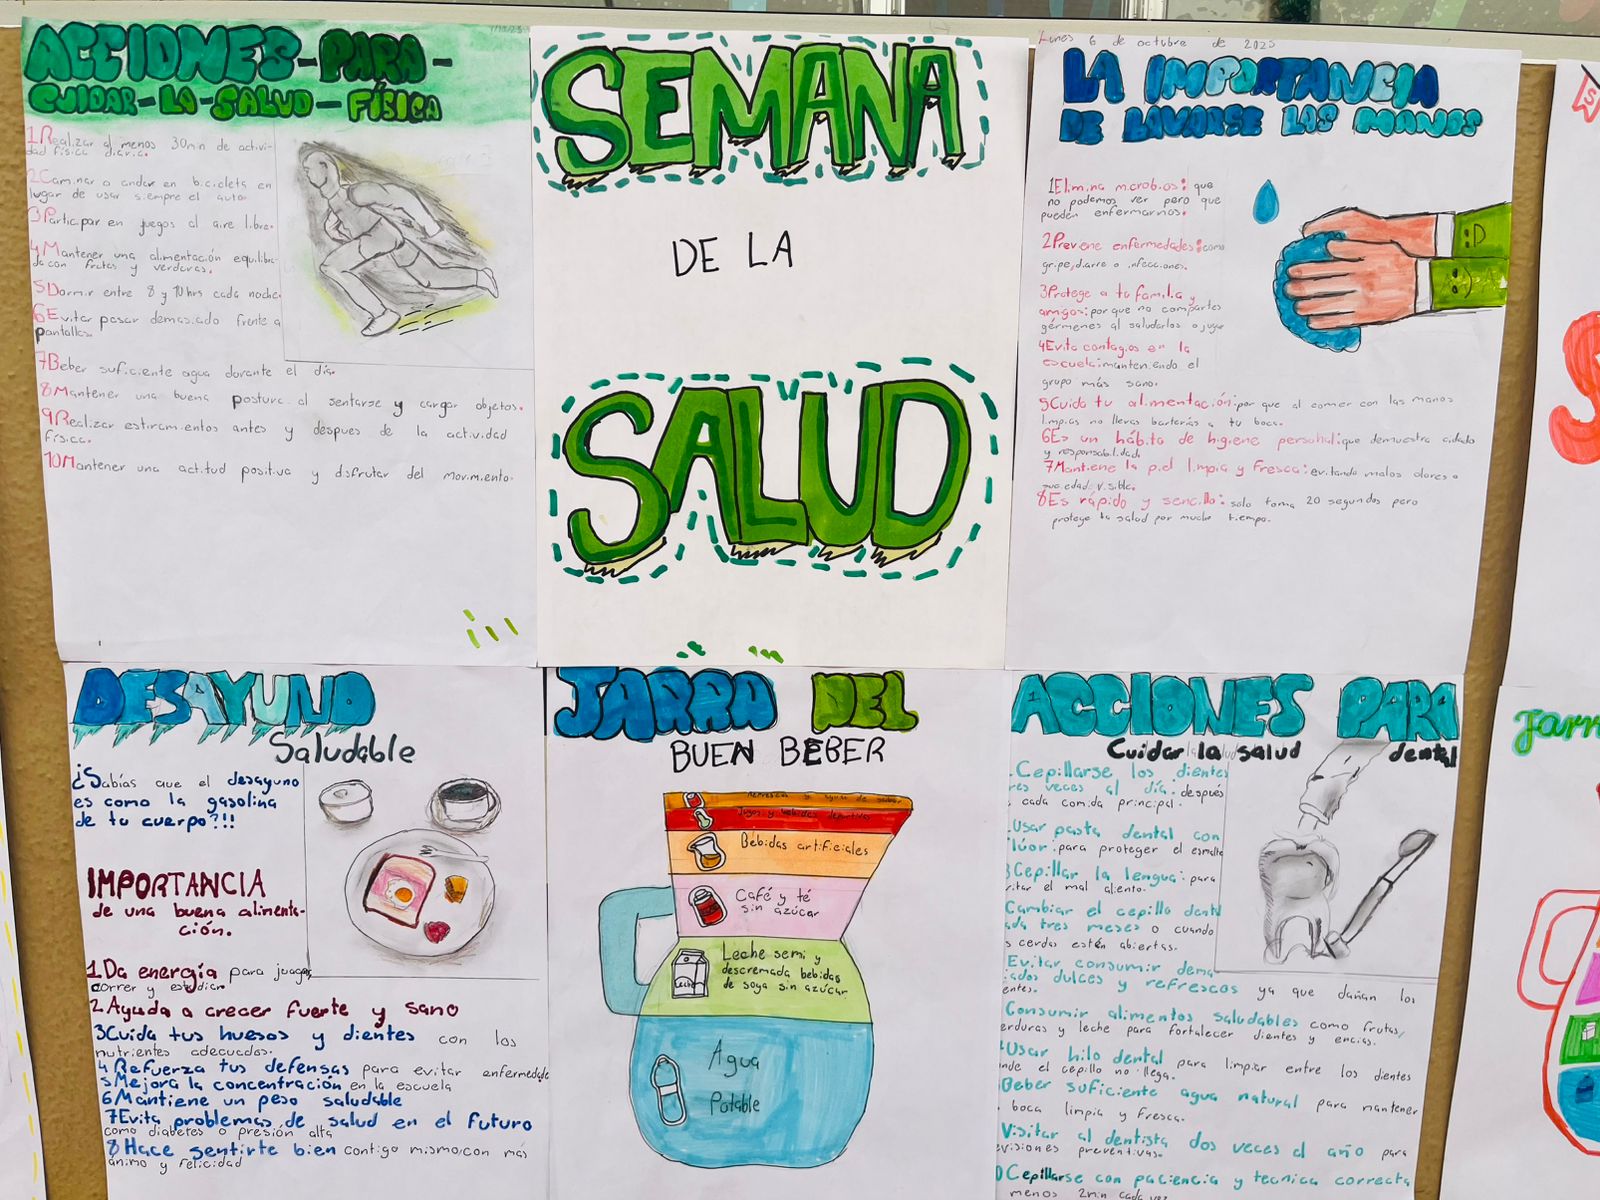 ACCIONES-PARA-
CUIDAR-LA-SALUD-FÍSICA
1Realizar al menos 30min de activi-
dad física diaria.
2Caminar o andar en bicicleta en
lugar de usar siempre el auto.
3Participar en juegos al aire libre.
4Mantener una alimentación equilibra-
da con frutas y verduras.
5Dormir entre 8 y 10hrs cada noche.
6Evitar pasar demasiado frente a
pantallas.
7Beber suficiente agua durante el día.
8Mantener una buena postura al sentarse y cargar objetos.
9Realizar estiramientos antes y despues de la actividad
física.
10Mantener una actitud positiva y disfrutar del movimiento.
SEMANA
DE LA
SALUD
Lunes 6 de octubre de 2025
LA IMPORTANCIA
DE LAVARSE LAS MANOS
1Elimina microbios: que
no podemos ver pero que
pueden enfermarnos.
2Previene enfermedades: como
gripe, diarre o infecciones.
3Protege a tu familia y
amigos: por que no compartes
gérmenes al saludarlos o jugar
4Evita contagios en la
escuela: manteniendo el
grupo más sano.
5Cuida tu alimentación: por que al comer con las manos
limpias no llevas bacterias a tu boca.
6Es un hábito de higiene personal: que demuestra cuidado
y responsabilidad.
7Mantiene la piel limpia y fresca: evitando malos olores o
suciedad visible.
8Es rápido y sencillo: solo toma 20 segundos pero
protege tu salud por mucho tiempo.
DESAYUNO
Saludable
¿Sabías que el desayuno
es como la gasolina
de tu cuerpo?!!
IMPORTANCIA
de una buena alimenta-
ción.
1Da energía para jugar,
correr y estudiar.
2.Ayuda a crecer fuerte y sano
3Cuida tus huesos y dientes con los
nutrientes adecuados.
4Refuerza tus defensas para evitar enfermedade
5Mejora la concentración en la escuela
6Mantiene un peso saludable
7Evita problemas de salud en el futuro
como diabetes o presión alta
8Hace sentirte bien contigo mismo con más
ánimo y felicidad
JARRA DEL
BUEN BEBER
Refrescos y agua de sabor
Jugos y bebidas deportivas
Bebidas artificiales
Café y té
sin azúcar
Leche semi y
descremada bebidas
de soya sin azúcar
Leche
Agua
Potable
ACCIONES PARA
Cuidar la salud dental
.Cepillarse los dientes
res veces al día: después
cada comida principal.
Usar pasta dental con
flúor: para proteger el esmalte
3Cepillar la lengua: para
itar el mal aliento.
Cambiar el cepillo dental
ada tres meses o cuando
s cerdas estén abiertas.
Evitar consumir dema
iados dulces y refrescos ya que dañan los
entes.
Consumir alimentos saludables como frutas,
erduras y leche para fortalecer dientes y encías.
Usar hilo dental para limpiar entre los dientes
nde el cepillo no llega.
Beber suficiente agua natural para mantener
boca limpia y fresca.
Visitar al dentista dos veces el año para
evisiones preventivas.
0Cepillarse con paciencia y tecnica correcta
menos 2min cada vez
Jarr